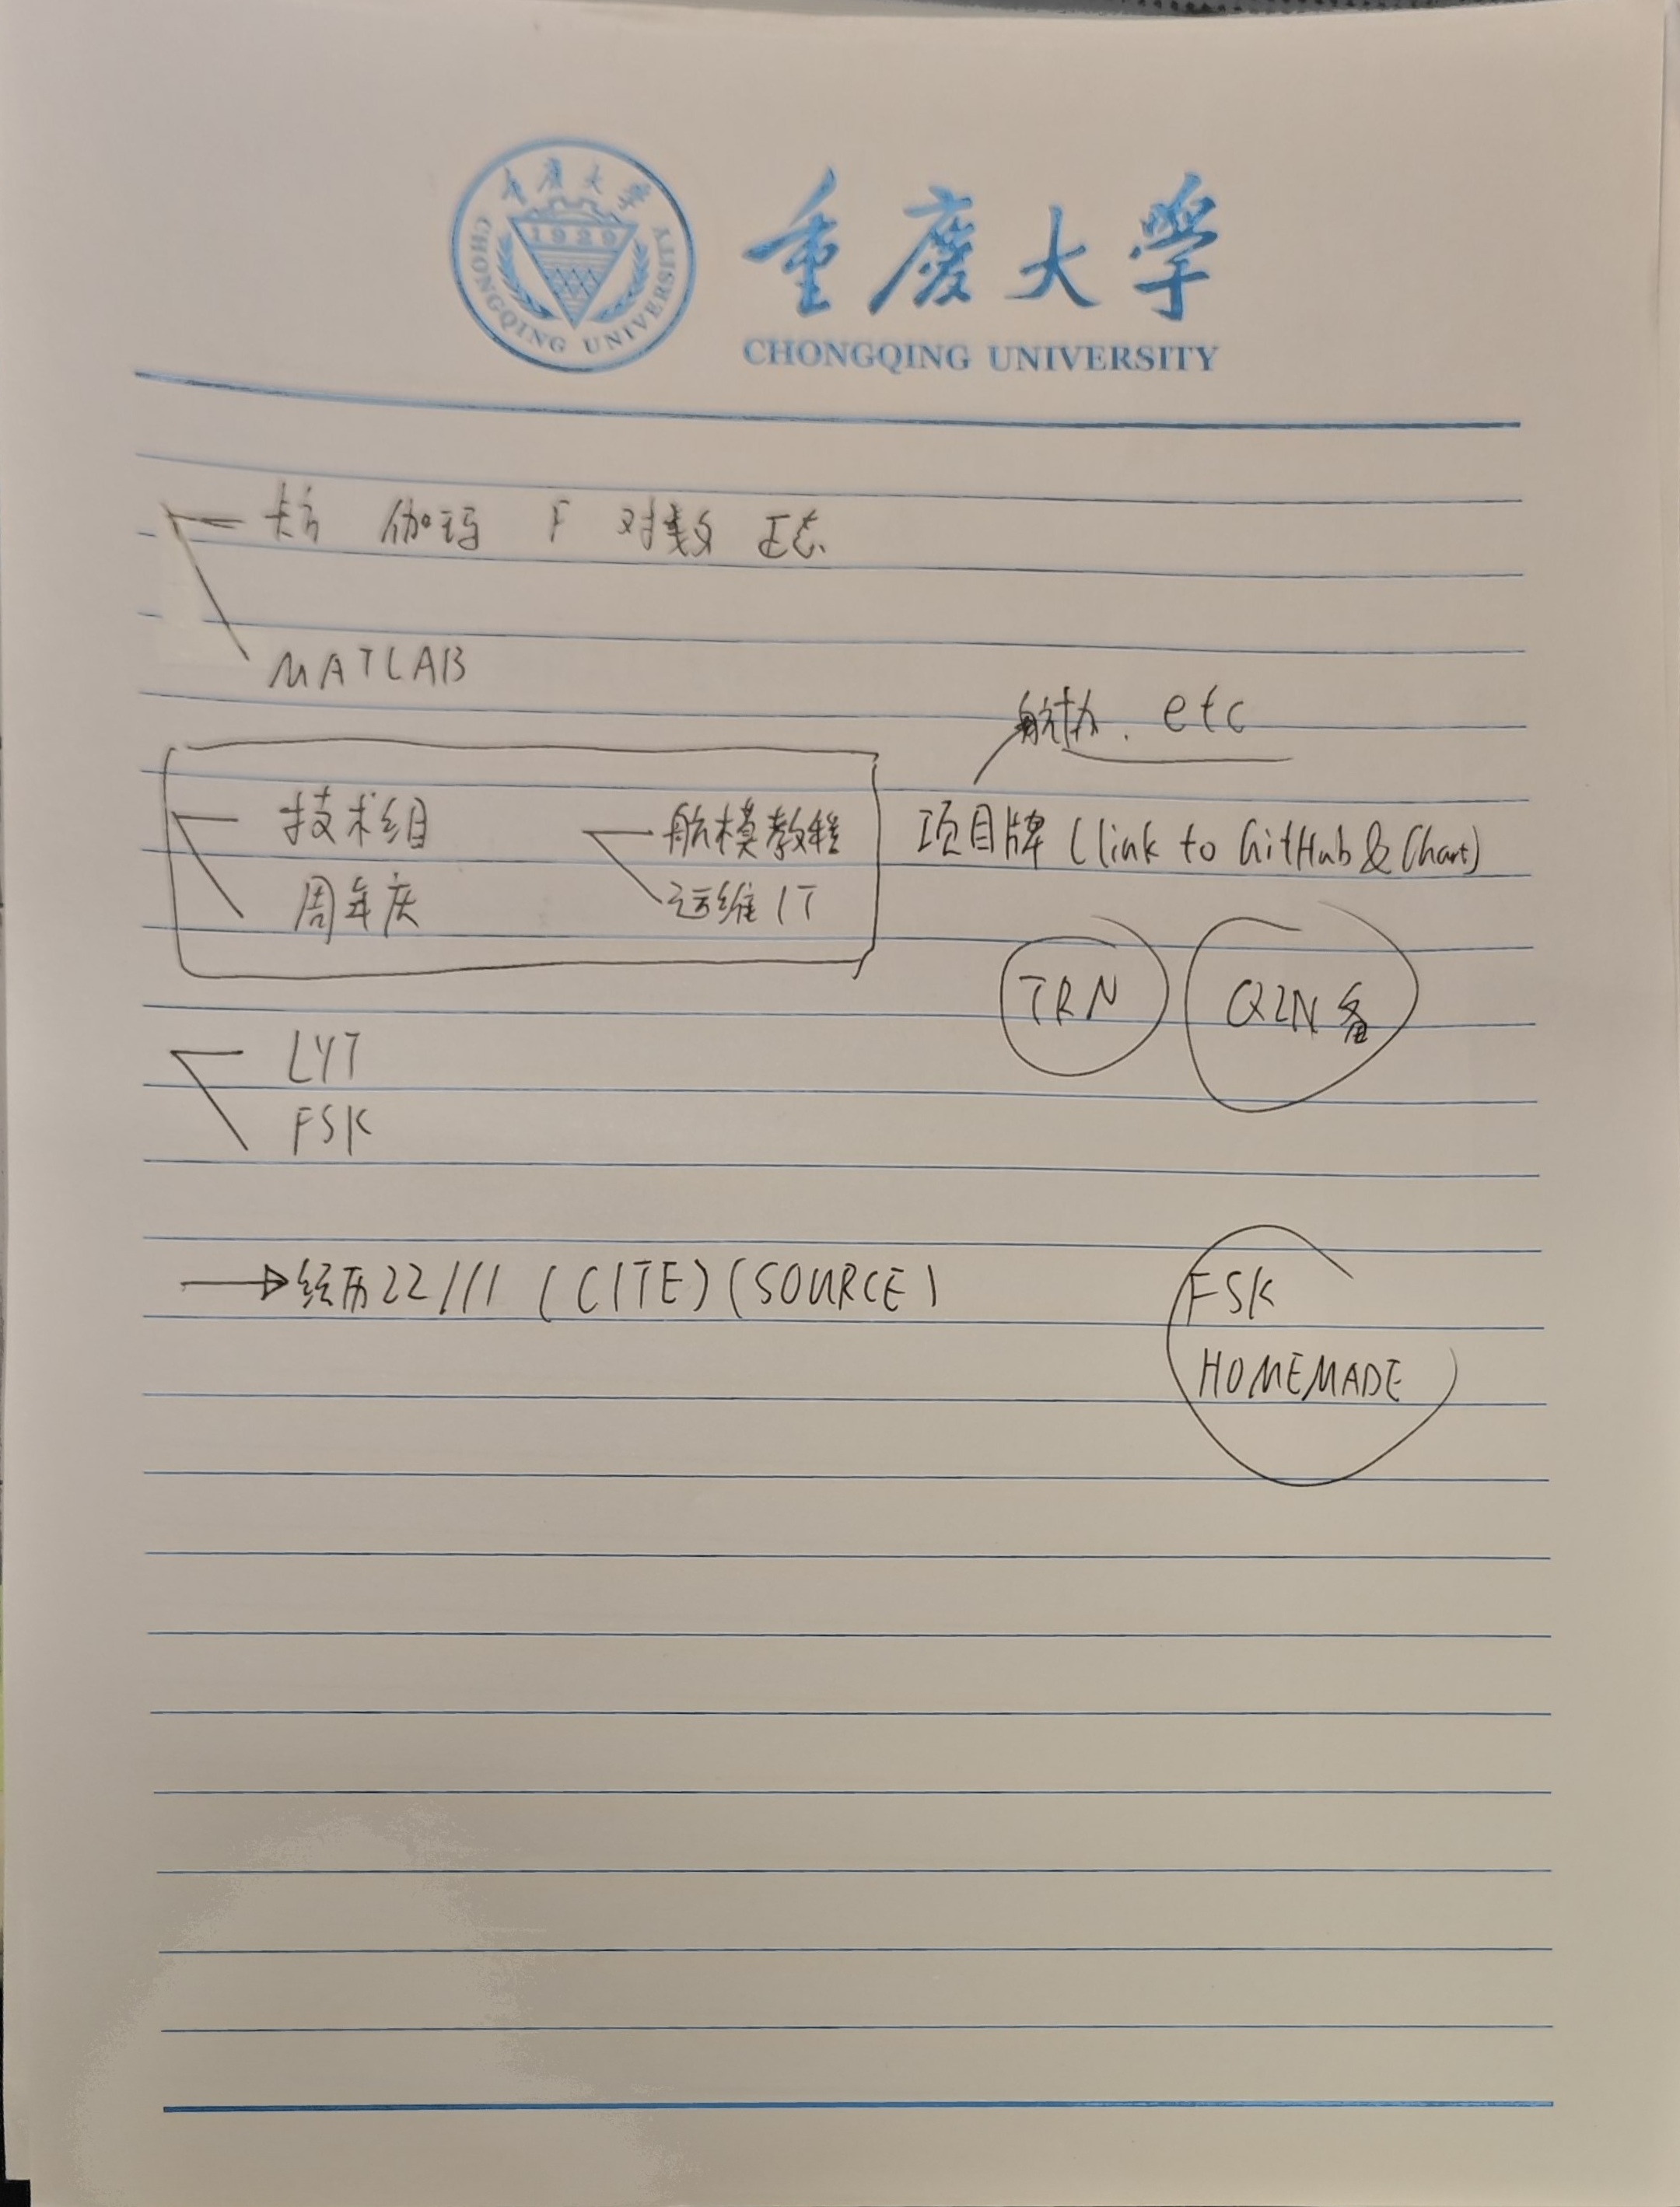 重慶大學
1929
CHONGQING UNIVERSITY
重慶大學
CHONGQING UNIVERSITY
卡方 伽玛 F 对数 正态
MATLAB
航协. etc
技术组 航模教程 项目牌 (link to GitHub & Chart)
周年庆 运维IT
TRN QZN备
LYT
FSK
经历22/11 (CITE) (SOURCE) FSK
HOMEMADE